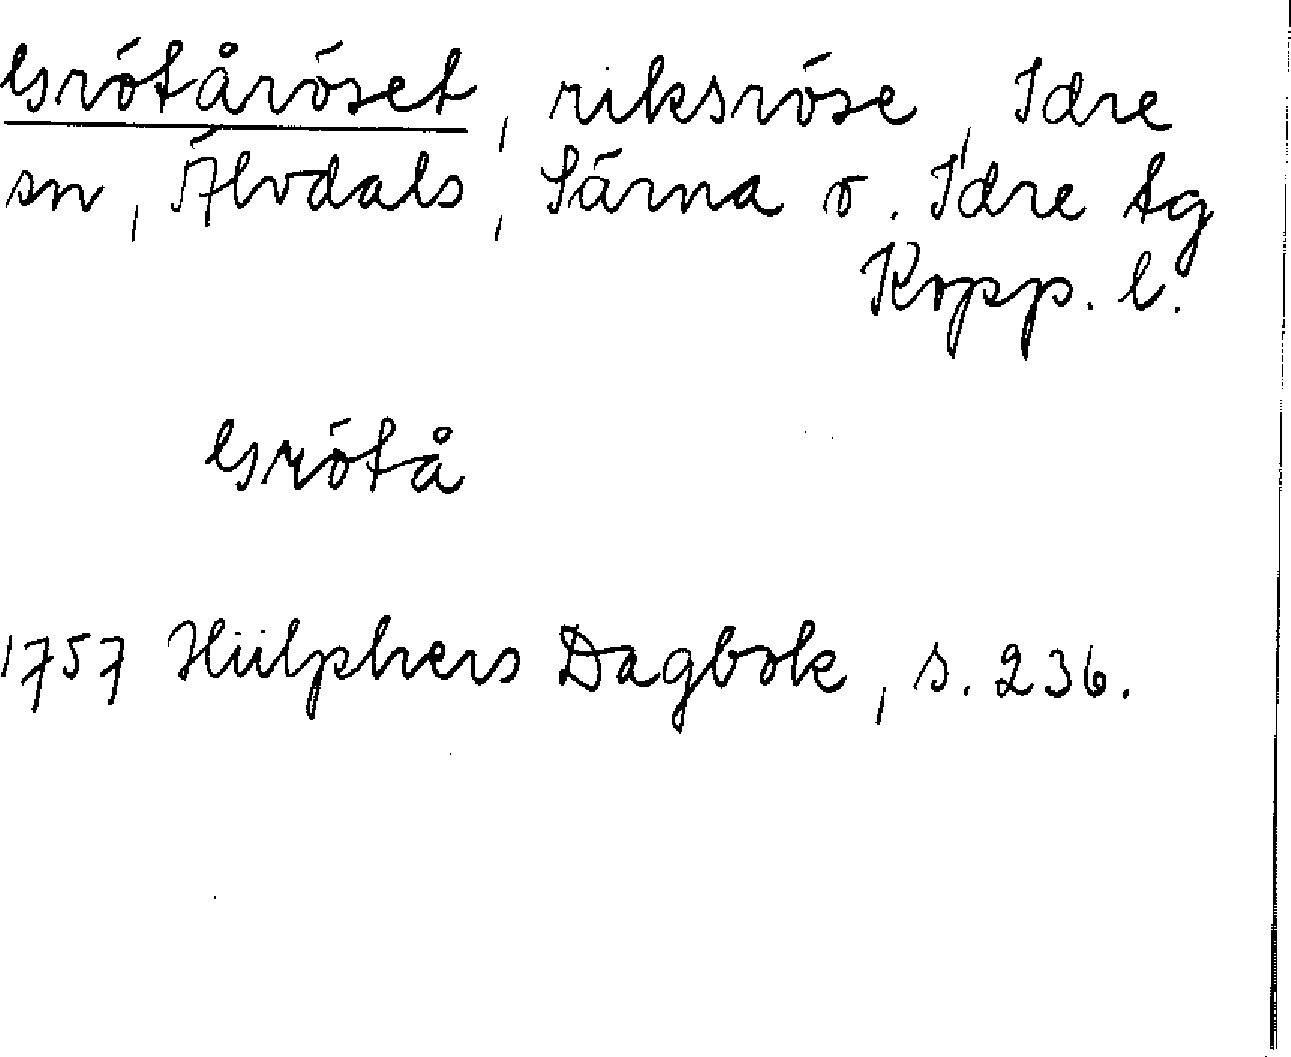 Grötåröset, riksröse, Idre
sn, Älvdals, Särna o. Idre tg
Kopp. l.
Grötå
1757 Hülphers Dagbok, s. 236.